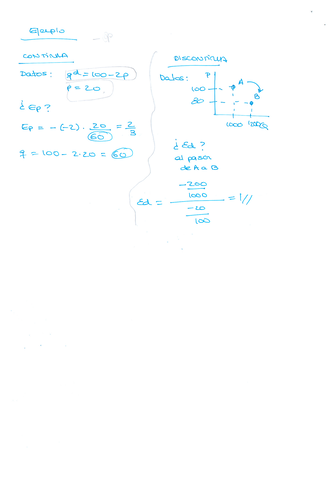 Ejemplo
CONTINUA
Datos: q^d = 100 - 2p
p = 20
¿Ep?
Ep = -(-2) · 20/60 = 2/3
q = 100 - 2·20 = 60
DISCONTINUA
Datos: P
100 A
80 B
1000
¿Ed?
al pasar
de A a B
Ed = (-200/1000)/(-20/100) = 1//